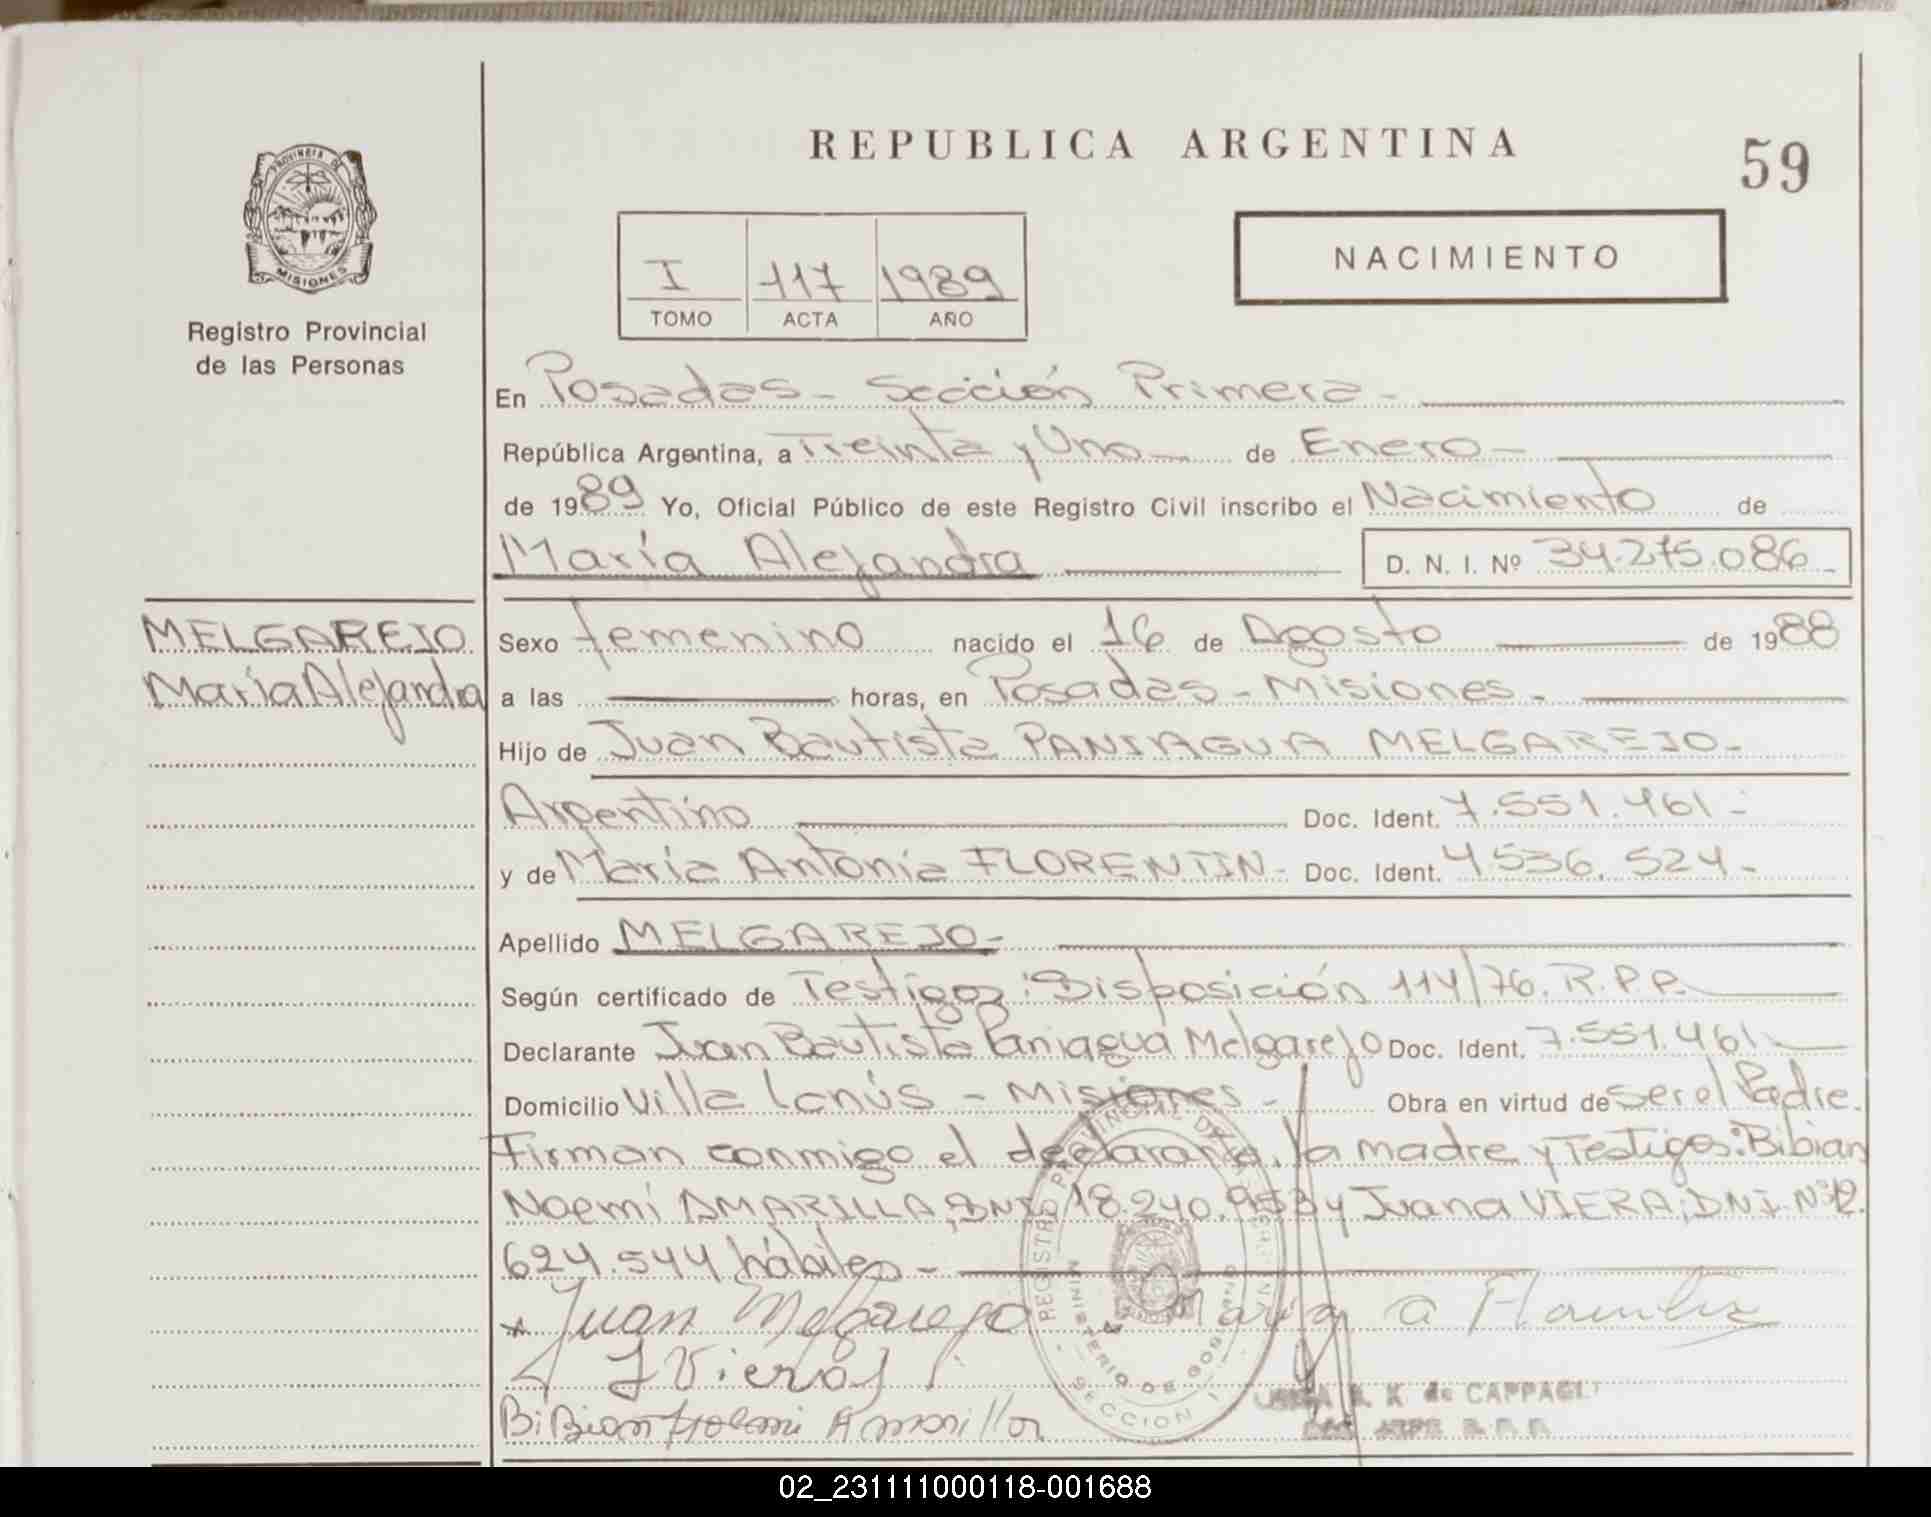 REPUBLICA ARGENTINA
59
PROVINCIA DE
MISIONES
Registro Provincial
de las Personas
I 117 1989
TOMO ACTA AÑO
NACIMIENTO
En Posadas - Sección Primera -
República Argentina, a Treinta y Uno de Enero
de 1989 Yo, Oficial Público de este Registro Civil inscribo el Nacimiento de
María Alejandra D. N. I. Nº 34.275.086
MELGAREJO
María Alejandra
Sexo femenino nacido el 16 de Agosto de 1988
a las horas, en Posadas - Misiones -
Hijo de Juan Bautista PANIAGUA MELGAREJO -
Argentino Doc. Ident. 7.551.461 -
y de María Antonia FLORENTIN - Doc. Ident. 4.536.524 -
Apellido MELGAREJO -
Según certificado de Testigos: Disposición 114/76. R.P.P.
Declarante Juan Bautista Paniagua Melgarejo Doc. Ident. 7.551.461
Domicilio Villa Lanús - Misiones - Obra en virtud de ser el Padre.
Firman conmigo el declarante, la madre y Testigos: Bibian
Noemí AMARILLA, DNI. 18.240.953 y Juana VIERA, DNI. Nº 12.
624.544 hábiles -
Juan Melgarejo Maria a
J Vieras
BiBian Noemi Amarillo
REGISTRO PROVINCIAL DE LAS PERSONAS
MINISTERIO DE GOBIERNO
SECCION 1
K de CAPPAGLI
02_231111000118-001688